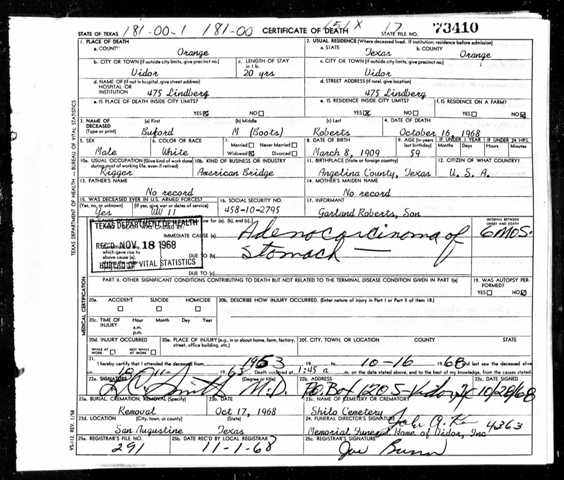 STATE OF TEXAS 181-00-1 181-00 CERTIFICATE OF DEATH 151X 17 STATE FILE NO. 73410
1. PLACE OF DEATH 2. USUAL RESIDENCE (Where deceased lived. If institution, residence before admission)
a. COUNTY Orange a. STATE Texas b. COUNTY Orange
b. CITY OR TOWN (If outside city limits, give precinct no.) c. LENGTH OF STAY in 1 b. c. CITY OR TOWN (If outside city limits, give precinct no.)
Vidor 20 yrs Vidor
d. NAME OF (If not in hospital, give street address) HOSPITAL OR INSTITUTION 475 Lindberg d. STREET ADDRESS (If rural, give location) 475 Lindberg
e. IS PLACE OF DEATH INSIDE CITY LIMITS? e. IS RESIDENCE INSIDE CITY LIMITS? f. IS RESIDENCE ON A FARM?
YES NO YES NO YES NO
3. NAME OF DECEASED (Type or print) (a) First (b) Middle (c) Last 4. DATE OF DEATH
Buford M (Boots) Roberts October 16, 1968
5. SEX 6. COLOR OR RACE 7. Married Never Married Widowed Divorced 8. DATE OF BIRTH 9. AGE (In years last birthday) IF UNDER 1 YEAR IF UNDER 24 HRS.
Months Days Hours Min.
Male White March 8, 1909 59
10a. USUAL OCCUPATION (Give kind of work done during most of working life, even if retired) 10b. KIND OF BUSINESS OR INDUSTRY 11. BIRTHPLACE (State or foreign country) 12. CITIZEN OF WHAT COUNTRY?
Rigger American Bridge Angelina County, Texas U. S. A.
13. FATHER'S NAME 14. MOTHER'S MAIDEN NAME
No record No record
15. WAS DECEASED EVER IN U.S. ARMED FORCES? 16. SOCIAL SECURITY NO. 17. INFORMANT
(Yes, no, or unknown) (If yes, give war or dates of service)
Yes WW 11 458-10-2795 Garland Roberts, Son
TEXAS DEPARTMENT OF HEALTH
REC'D NOV 18 1968
BUREAU OF VITAL STATISTICS
INTERVAL BETWEEN ONSET AND DEATH
IMMEDIATE CAUSE (a) Adenocarcinoma of 6 MOS.
DUE TO (b) Stomach
DUE TO (c)
PART II. OTHER SIGNIFICANT CONDITIONS CONTRIBUTING TO DEATH BUT NOT RELATED TO THE TERMINAL DISEASE CONDITION GIVEN IN PART I(a) 19. WAS AUTOPSY PERFORMED?
YES NO
20a. ACCIDENT SUICIDE HOMICIDE 20b. DESCRIBE HOW INJURY OCCURRED. (Enter nature of injury in Part I or Part II of item 18.)
20c. TIME OF INJURY Hour a.m. p.m. Month Day Year
20d. INJURY OCCURRED 20e. PLACE OF INJURY (e.g., in or about home, farm, factory, street, office building, etc.) 20f. CITY, TOWN, OR LOCATION COUNTY STATE
WHILE AT WORK NOT WHILE AT WORK
21. I hereby certify that I attended the deceased from 1953 10-16 1968 last saw the deceased alive
Death occurred at 1:45 a m. on the date stated above, and to the best of my knowledge, from the causes stated.
22a. SIGNATURE (Degree or title) 22b. ADDRESS 22c. DATE SIGNED
Smith M.D. P.O. Box 1270 S-Vidor, Tx 10/28/68
23a. BURIAL, CREMATION, REMOVAL (Specify) 23b. DATE 23c. NAME OF CEMETERY OR CREMATORY
Removal Oct 17, 1968 Shilo Cemetery
23d. LOCATION (City, town, or county) (State) 24. FUNERAL DIRECTOR'S SIGNATURE 4363
San Augustine Texas Memorial Funeral Home of Vidor, Inc
25a. REGISTRAR'S FILE NO. 25b. DATE REC'D BY LOCAL REGISTRAR 25c. REGISTRAR'S SIGNATURE
291 11-1-68 Joe
TEXAS DEPARTMENT OF HEALTH — BUREAU OF VITAL STATISTICS
MEDICAL CERTIFICATION
VS-112 REV. 1/58